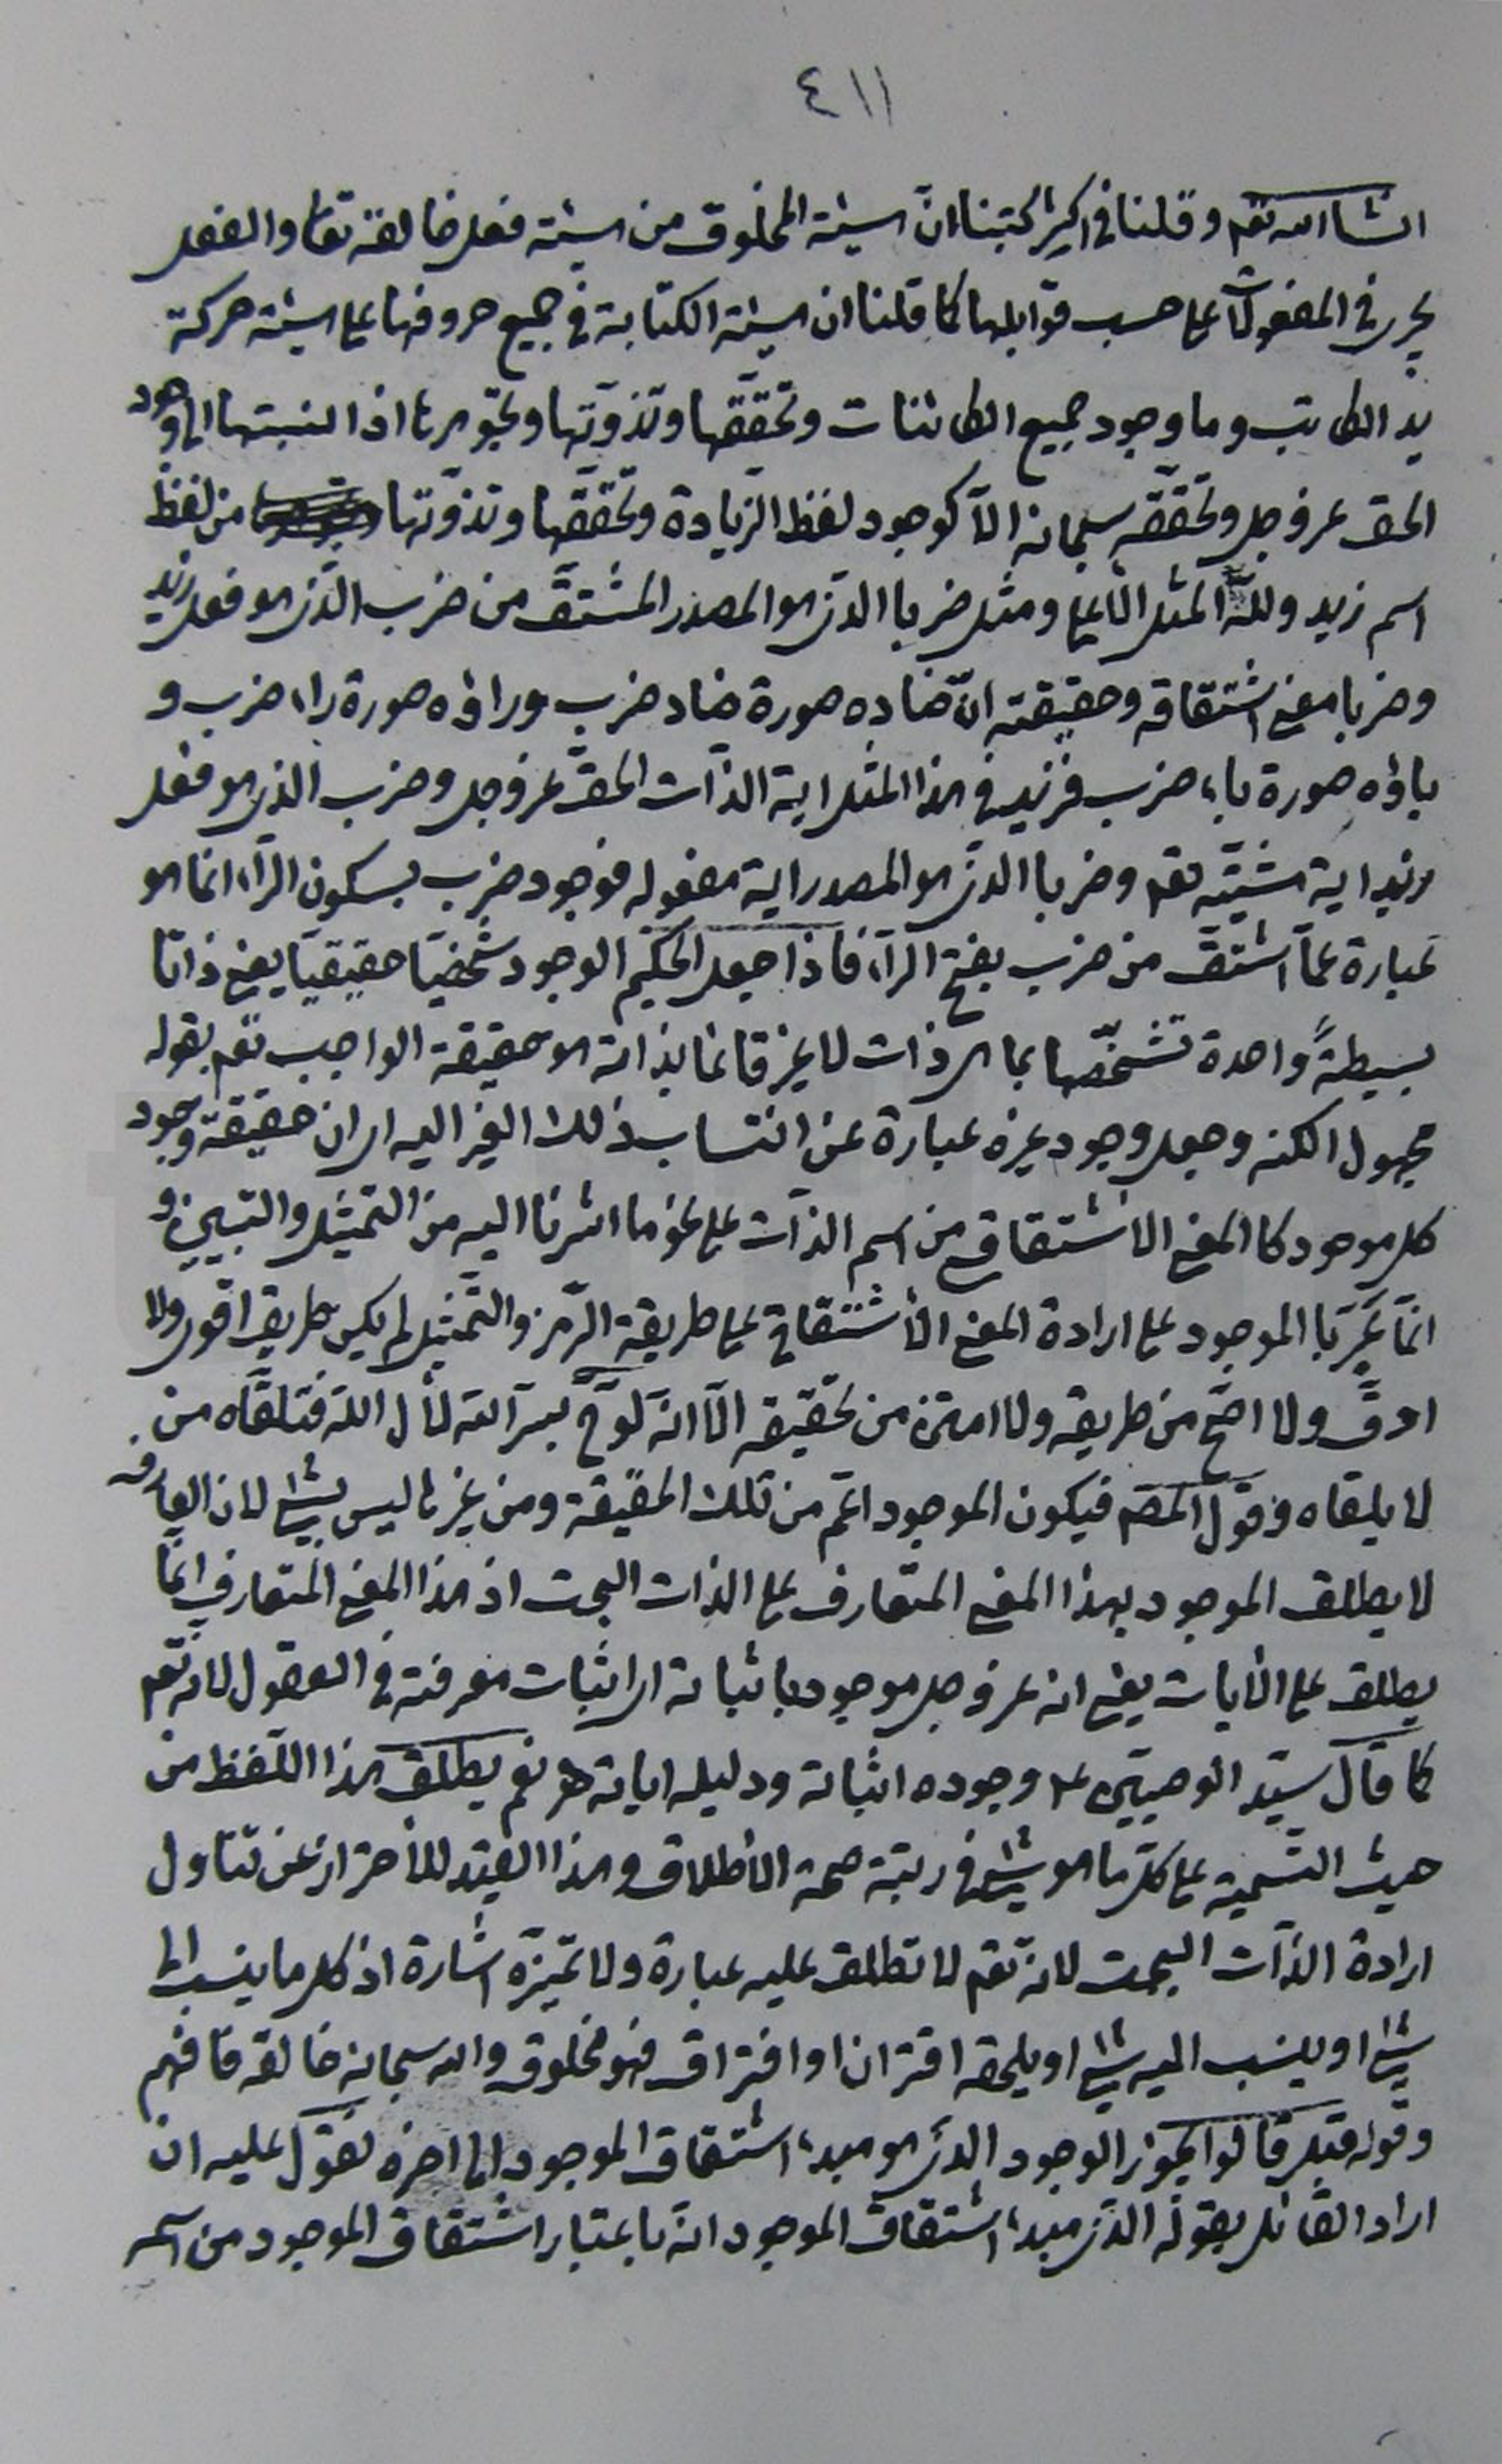 ٤١١
انشا الله تعم وقلنا فى اكثر كتبنا انّ هيئة المخلوق من هيئة فعل خالقه تعا والفعل
يجرى فى المفعولات على حسب قوابلها كما قلنا ان هيئة الكتابة فى جميع حروفها على هيئة حركة
يد الكاتب وما وجود جميع الكائنات وتحقّقها وتذوّتها وتجوهرها اذا نسبتها الى وجود
الحق عز وجل وتحقّقه سبحانه الّا كوجود لفظ الزيادة وتحقّقها وتذوّتها من لفظ
اسم زيد وللّه المثل الأعلى ومثل ضربا الذى هو المصدر المشتق من ضرب الّذى هو فعل زيد
وضربا معنى اشتقاقه وحقيقته انّ ضاده صورة ضاد ضرب وراؤه صورة راء ضرب و
باؤه صورة باء ضرب فزيد فى هذا المثل اية الذّات الحقّ عز وجل وضرب الذى هو فعل
زيد اية مشيّته تعم وضربا الذى هو المصدر اية مفعوله فوجود ضرب بسكون الرّاء انما هو
عبارة عمّا اشتقّ من ضرب بفتح الرّاء فاذا جعل الحكيم الوجود شخصيّا حقيقيّا يعنى ذاتا
بسيطةً واحدة تشخّصها بما هى ذات لا بغير قائما بذاته هو حقيقة الواجب تعم بقوله
مجهول الكنه وجعل وجود غيره عبارة عن انتساب ذلك الغير اليه اى ان حقيقة وجود
كل موجود كالمعنى الاشتقاقى من اسم الذّات على نحو ما اشرنا اليه من التمثيل والتبيين و
انّما عبّر بالموجود على ارادة المعنى الأشتقاقى على طريقة الرّمز والتّمثيل لم يكن طريق اقوى ولا
ادقّ ولا اصّح من طريقه ولا امتن من تحقيقه الّا انّه لوّح بسرّ الله لأل الله فتلقّاه من
لا يلقاه وقول المصّ فيكون الموجود اعّم من تلك الحقيقة ومن غيرها ليس بشئ لان العارف
لا يطلق الموجود بهذا المعنى المتعارف على الذات البحت اذ هذا المعنى المتعارف انّما
يطلق على الأيات يعنى انه عز وجل موجود باثباته اى اثبات معرفته فى العقول لانه تعم
كما قال سيّد الوصيّين ع وجوده اثباته ودليله اياته هـ نعم يطلق هذا اللّفظ من
حيث التّسمية على كلّ ما هو شئ فى رتبة صحة الأطلاق وهذا القيد للأحتراز عن تناول
ارادة الذّات البحت لانه تعم لا تطلق عليه عبارة ولا تميّزه اشارة اذ كل ما ينسب الى
شئ او ينسب اليه شئ او يلحقه اقتران او افتراق فهو مخلوق والله سبحانه خالقه فافهم
وقوله قيل قالوا يجوز الوجود الذى هو مبدء اشتقاق الموجود الى اخره نقول عليه ان
اراد القائل بقوله الذى مبدء اشتقاق الموجود انه باعتبار اشتقاق الموجود من اسمه